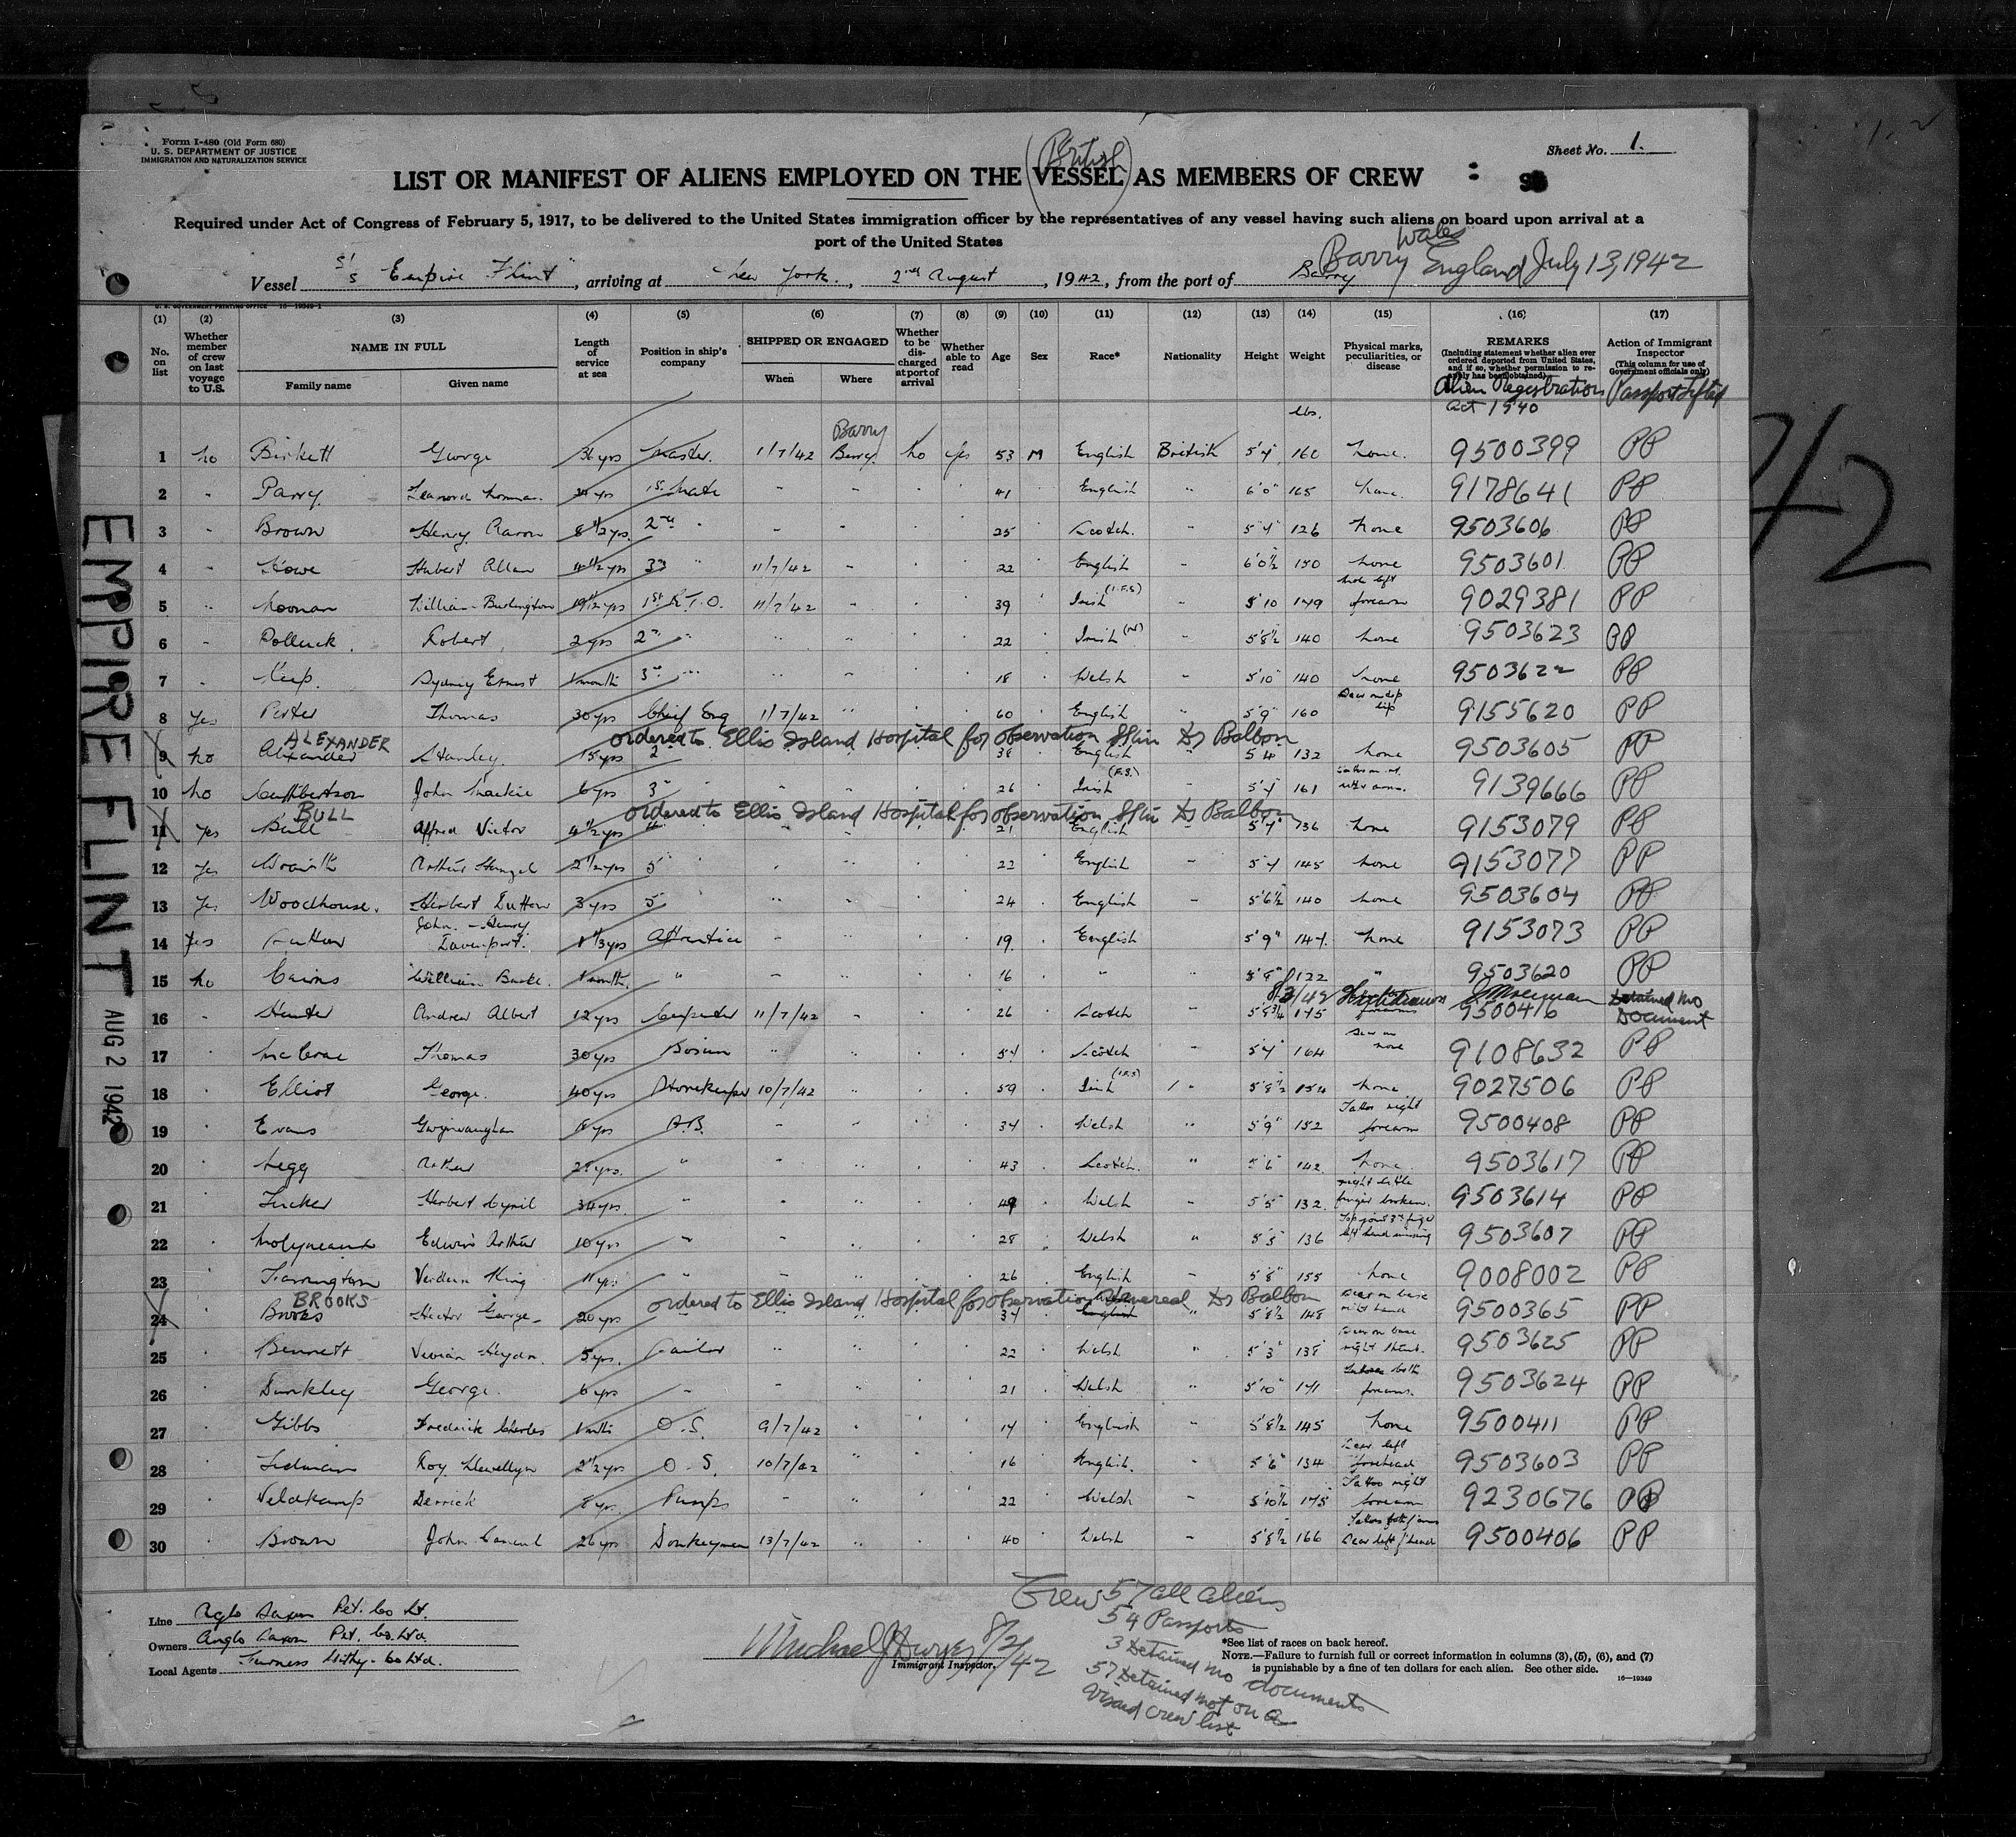 Form I-480 (Old Form 680)
U. S. DEPARTMENT OF JUSTICE
IMMIGRATION AND NATURALIZATION SERVICE
Sheet No. 1.
(British)
LIST OR MANIFEST OF ALIENS EMPLOYED ON THE VESSEL AS MEMBERS OF CREW
Required under Act of Congress of February 5, 1917, to be delivered to the United States immigration officer by the representatives of any vessel having such aliens on board upon arrival at a
port of the United States
Wales
Vessel S/S "Empire Flint", arriving at New York., 2nd August, 1942, from the port of Barry Barry England July 13, 1942
U. S. GOVERNMENT PRINTING OFFICE 16—19349-1
(1) (2) (3) (4) (5) (6) (7) (8) (9) (10) (11) (12) (13) (14) (15) (16) (17)
No. on list
Whether member of crew on last voyage to U.S.
NAME IN FULL
Family name Given name
Length of service at sea
Position in ship's company
SHIPPED OR ENGAGED
When Where
Whether to be discharged at port of arrival
Whether able to read
Age
Sex
Race*
Nationality
Height
Weight
Physical marks, peculiarities, or disease
REMARKS
(Including statement whether alien ever ordered deported from United States, and if so, whether permission to reapply has been obtained)
Alien Registration
Act 1940
Action of Immigrant Inspector
(This column for use of Government officials only)
Passport Lifted
lbs.
Barry
1 no Birkett George 36 yrs Master. 11/7/42 Barry. no yes 53 M English British 5'4 160 none. 9500399 PP
2 " Parry Leanord Norman 1st Mate 41 English 6'0" 165 none. 9178641 PP
3 Brown Henry Aaron 8 1/2 yrs. 2nd " 25 Scotch. 5'4" 126 none 9503606 PP
4 Howe Hubert Allan 3rd " 11/7/42 22 English 6'0½ 150 none 9503601 PP
5 Noonan William Burlington 1st R.T.O. 11/7/42 39 Irish (I.F.S) 5'10 149 left forearm 9029381 PP
6 Polluck Robert 2 yrs 2nd " 22 Irish (N) 5'8½ 140 none 9503623 PP
7 Sydney Ernest 1 month 3rd " 18 Welsh 5'10" 140 none 9503622 PP
8 Yes Porter Thomas 30 yrs Chief Eng 11/7/42 60 English 5'9" 160 lip 9155620 PP
ALEXANDER ordered to Ellis Island Hospital for observation Skin Dr Balbon
9 no Alexander Stanley 15 yrs 2nd 38 English 5'4" 132 none 9503605 PP
10 no Cuthbertson John Mackie 6 yrs 3rd 26 Irish (F.S.) 5'4 161 9139666 PP
BULL ordered to Ellis Island Hospital for observation Skin Dr Balbon
11 Yes Bull Alfred Victor 4 1/2 yrs 21 English 5'4" 136 none 9153079 PP
12 Yes Arthur 2 1/2 yrs 5 22 English 5'4 145 none 9153077 PP
13 Yes Woodhouse. Herbert Dutton 3 yrs 5 24 English 5'6½ 140 none 9503604 PP
14 Yes John Henry Davenport. Apprentice 19 English 5'9" 147 none 9153073 PP
15 no Cairns William 1 month. " 16 " 5'8" 122 " 9503620 PP
8/3/42
16 Hunter Andrew Albert 12 yrs Carpenter 11/7/42 26 Scotch 5'8¾ 175 forearms 9500416 Detained no Document
17 McCrae Thomas 30 yrs Bosun 54 Scotch 5'4" 164 Scar on nose 9108632 PP
18 Elliot George. 40 yrs Storekeeper 10/7/42 59 Irish (I.F.S) 5'8½ 154 none 9027506 PP
19 Evans Gwynvaughan 8 yrs A.B. 34 Welsh 5'9" 152 Tattoo right forearm 9500408 PP
20 Legg Arthur 43 Scotch. 5'6" 142 none. 9503617 PP
21 Tucker Herbert Cyril 34 yrs. 49 Welsh 5'5" 132 right little finger broken. 9503614 PP
22 Molyneaux Edwin Arthur 10 yrs 28 Welsh 5'5" 136 Top joint 3rd finger left hand missing 9503607 PP
23 Farrington Verdun King 11 yrs 26 English 5'8" 155 none 9008002 PP
BROOKS ordered to Ellis Island Hospital for observation Dr Balbon
24 Brooks Hector George 20 yrs 34 English 5'8½ 148 Scar on base right hand 9500365 PP
25 Bennett Vivian Heydn. 5 yrs. Sailor 22 Welsh 5'3" 138 Scar on base right thumb. 9503625 PP
26 Dunkley George. 6 yrs 21 Welsh 5'10" 141 Tattoos both forearms. 9503624 PP
27 Gibbs Frederick Charles O.S. 9/7/42 English 5'8½ 145 none 9500411 PP
28 Roy Llewellyn 2 1/2 yrs O.S. 10/7/42 16 English. 5'6" 134 Scar left forehead 9503603 PP
29 Veldkamp Derrick 8 yrs. Pumps 22 Welsh 5'10½ 175 Tattoo right forearm 9230676 PP
30 Brown John 26 yrs Donkeyman 13/7/42 40 Welsh 5'8½ 166 9500406 PP
EMPIRE FLINT
AUG 2 1942
42
Line Aglo Saxon Pet. Co Lt.
Owners Anglo Saxon Pet. Co. Ltd.
Local Agents Furness Withy Co Ltd.
Michael J Dwyer 8/2/42
Immigrant Inspector.
Crew 57 all aliens
54 Passports
3 Detained no document
57 Detained not on a
visaed crew list
*See list of races on back hereof.
NOTE.—Failure to furnish full or correct information in columns (3), (5), (6), and (7)
is punishable by a fine of ten dollars for each alien. See other side.
16—19349